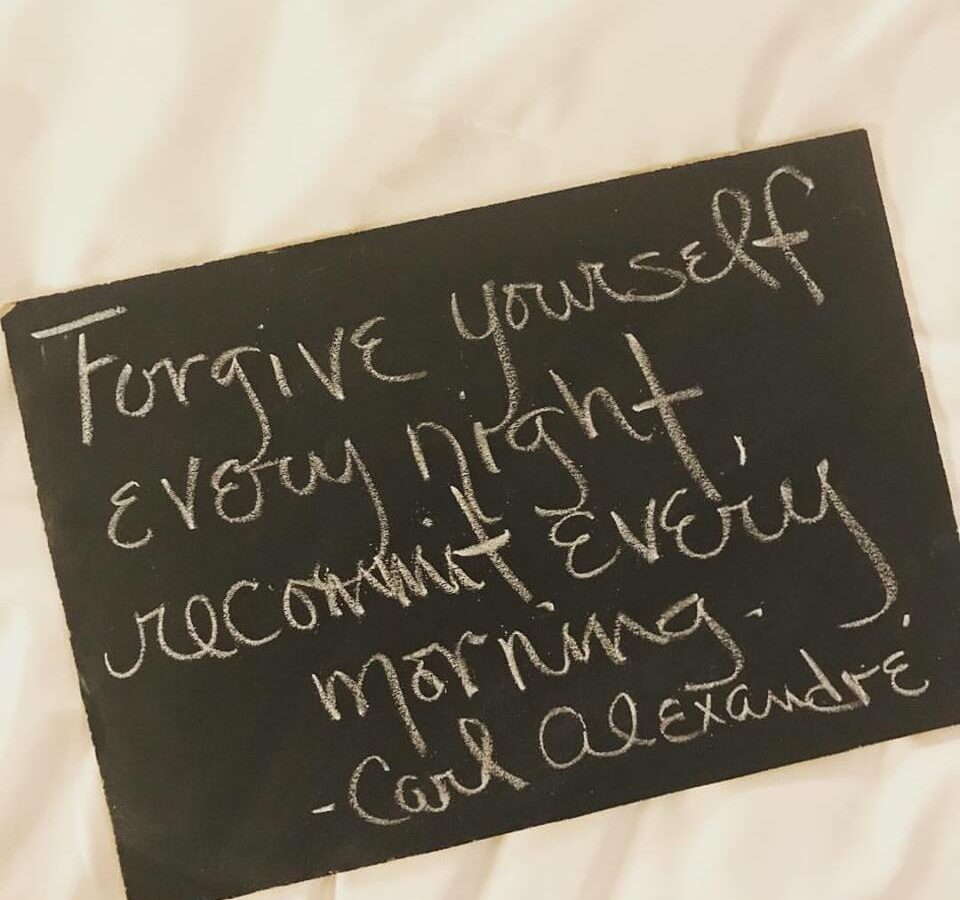 Forgive yourself
every night,
recommit every
morning.
- Carl Alexandre